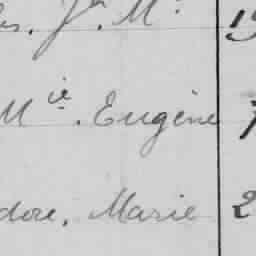 es, Jn M. 19
Mie. Eugène 7
dore, Marie 2